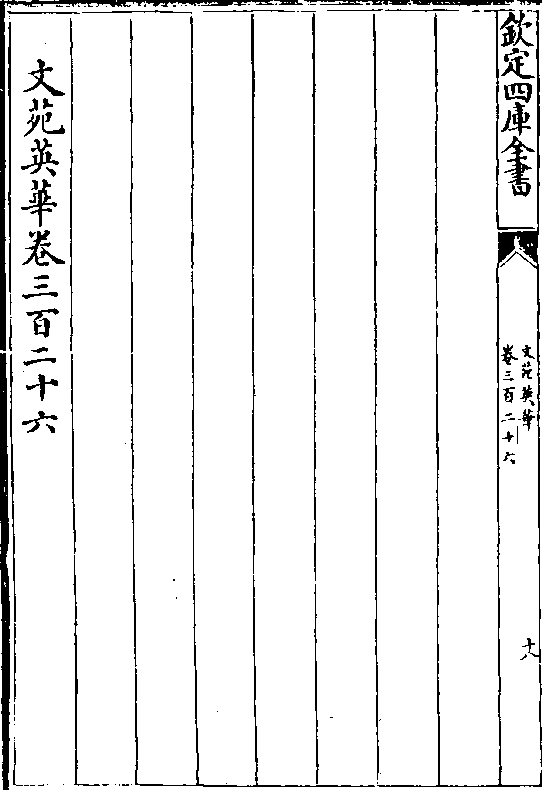 欽定四庫全書
文苑英華
卷三百二十六
十八
文苑英華卷三百二十六